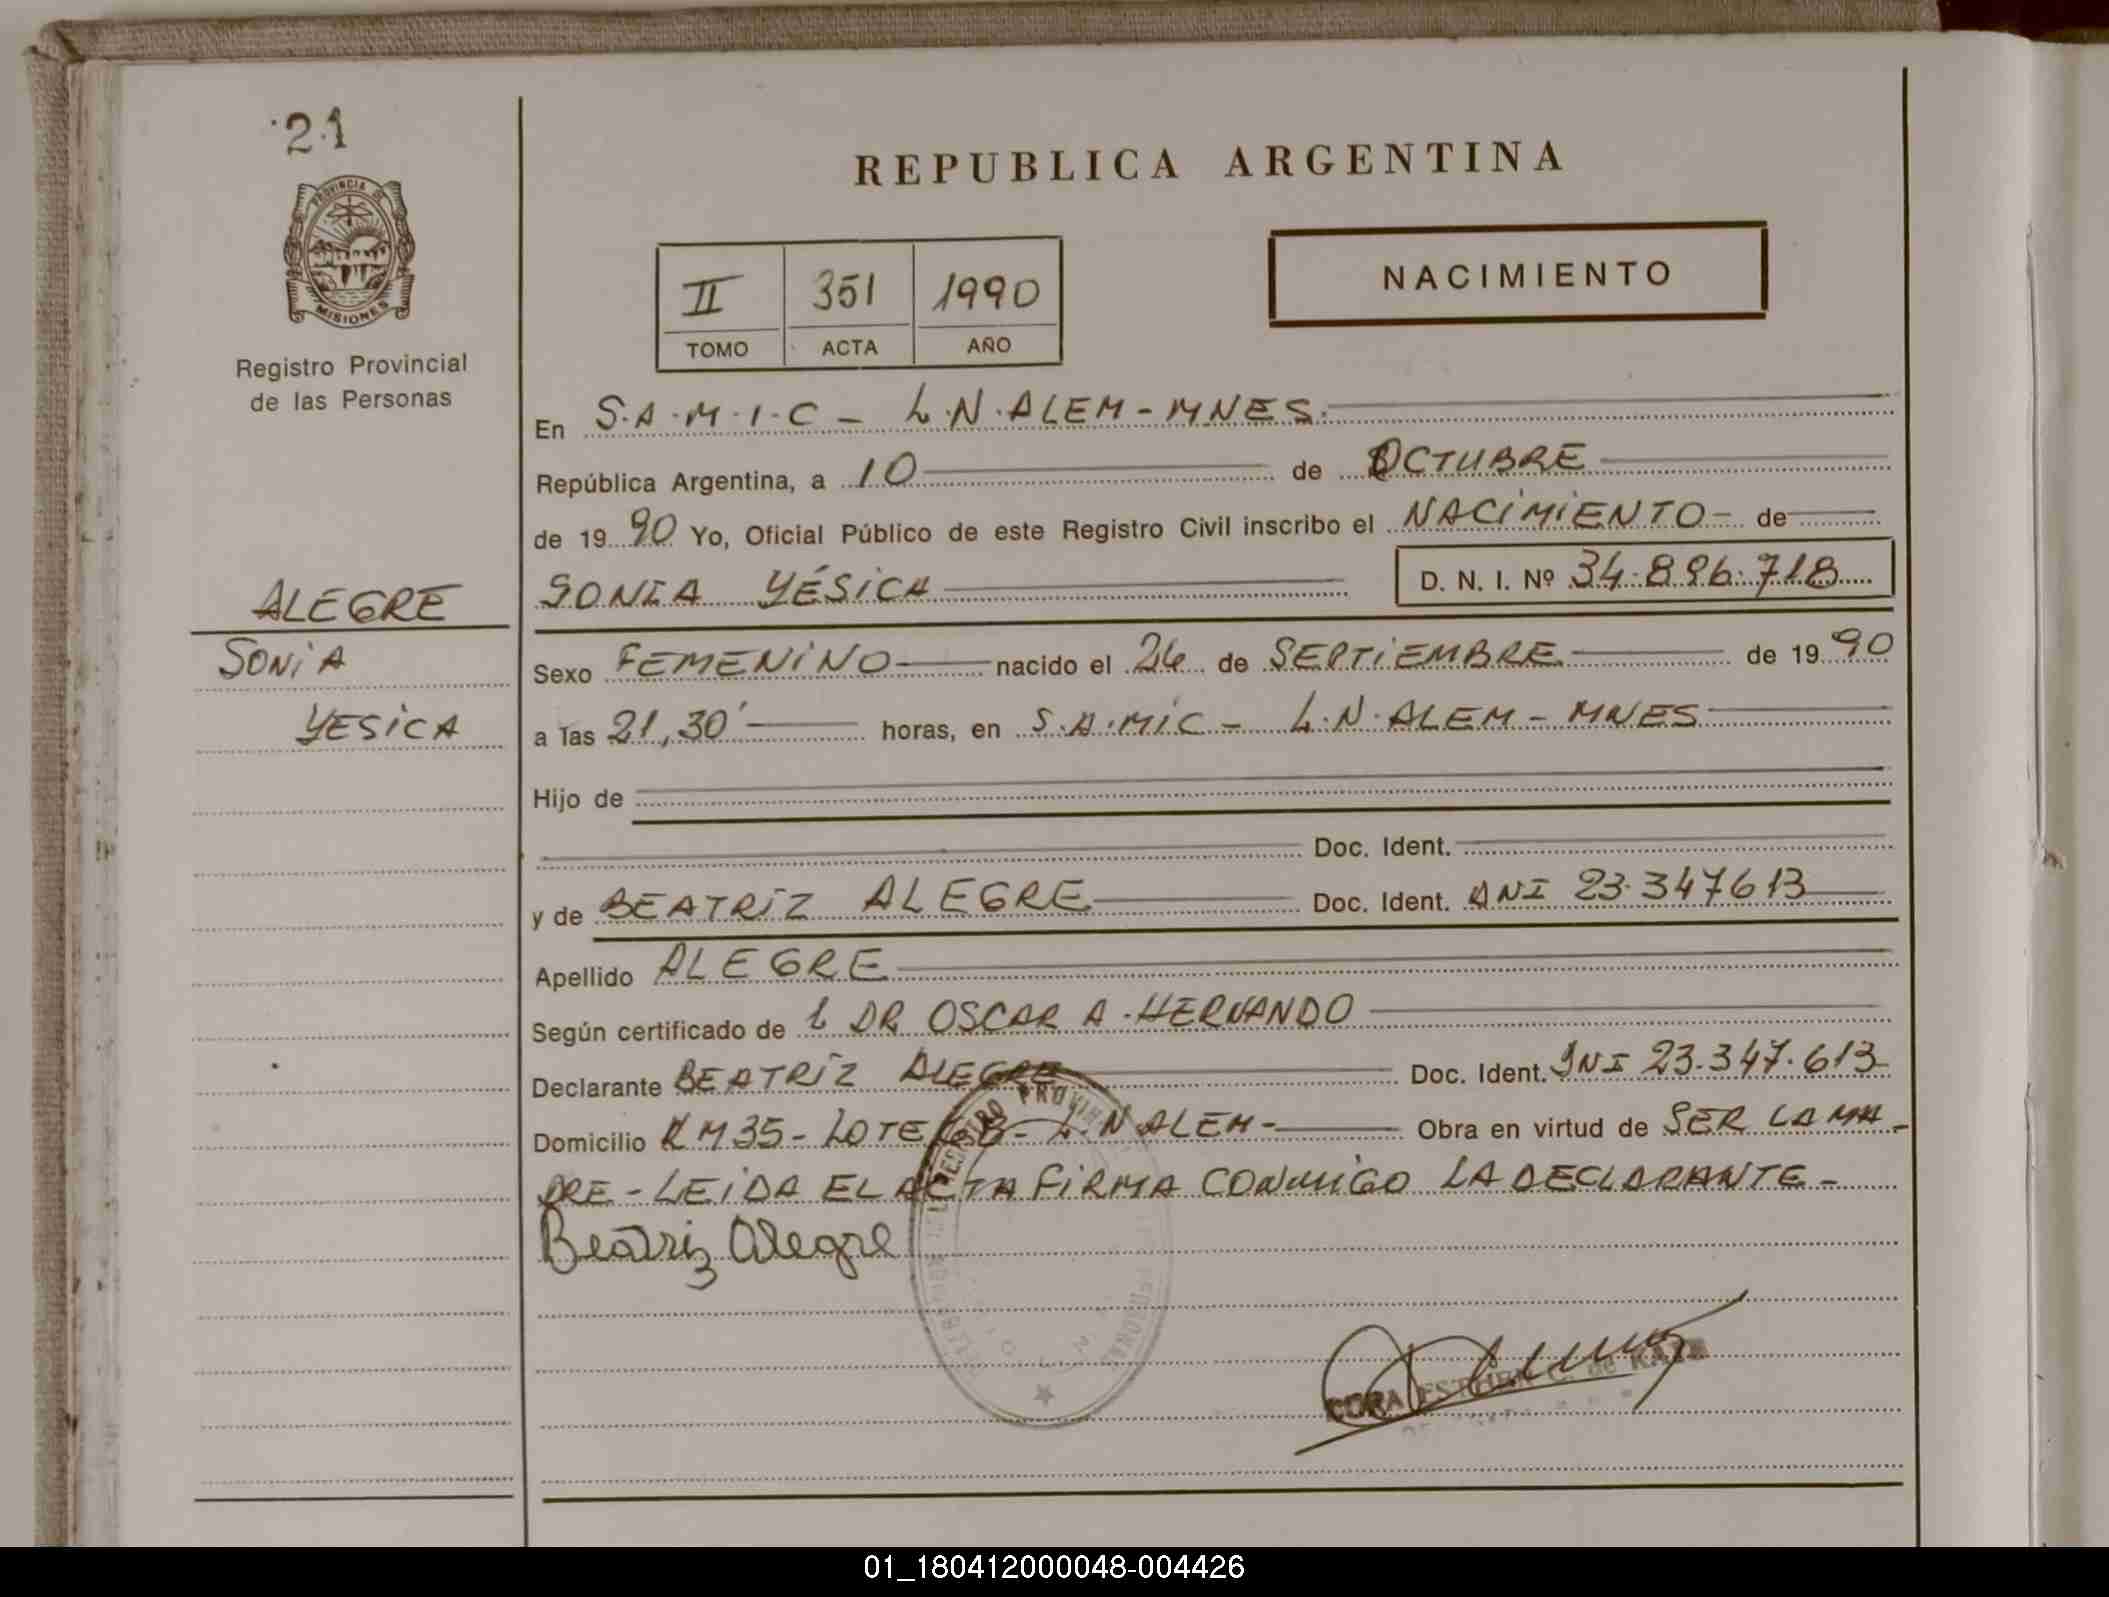 21
PROVINCIA DE
MISIONES
Registro Provincial
de las Personas
ALEGRE
SONIA
YESICA
REPUBLICA ARGENTINA
II 351 1990
TOMO ACTA AÑO
NACIMIENTO
En S.A.M.I.C - L.N.ALEM - MNES.
República Argentina, a 10 de OCTUBRE
de 1990 Yo, Oficial Público de este Registro Civil inscribo el NACIMIENTO - de
SONIA YÉSICA D. N. I. Nº 34.896.718
Sexo FEMENINO nacido el 26 de SEPTIEMBRE de 1990
a las 21,30' horas, en S.A.MIC - L.N.ALEM - MNES
Hijo de
Doc. Ident.
y de BEATRIZ ALEGRE Doc. Ident. DNI 23.347613
Apellido ALEGRE
Según certificado de L DR OSCAR A. HERNANDO
Declarante BEATRIZ ALEGRE Doc. Ident. DNI 23.347.613
Domicilio KM35 - LOTE - L.N ALEM - Obra en virtud de SER LA MA-
DRE - LEIDA EL ACTA FIRMA CONMIGO LA DECLARANTE -
Beatriz Alegre
REGISTRO PROVINCIAL
CORA ESTHER de
01_180412000048-004426